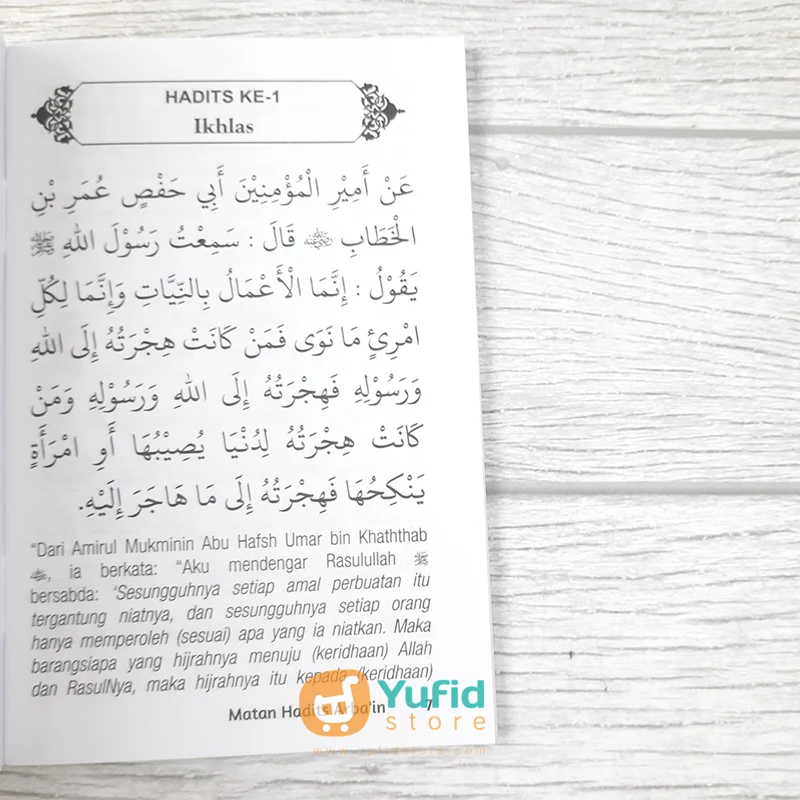 HADITS KE-1
Ikhlas
عَنْ أَمِيْرِ الْمُؤْمِنِيْنَ أَبِي حَفْصٍ عُمَرَ بْنِ
الْخَطَابِ ﵁ قَالَ : سَمِعْتُ رَسُوْلَ اللهِ ﷺ
يَقُوْلُ : إِنَّمَا الْأَعْمَالُ بِالنِّيَّاتِ وَإِنَّمَا لِكُلِّ
امْرِئٍ مَا نَوَى فَمَنْ كَانَتْ هِجْرَتُهُ إِلَى اللهِ
وَرَسُوْلِهِ فَهِجْرَتُهُ إِلَى اللهِ وَرَسُوْلِهِ وَمَنْ
كَانَتْ هِجْرَتُهُ لِدُنْيَا يُصِيْبُهَا أَوِ امْرَأَةٍ
يَنْكِحُهَا فَهِجْرَتُهُ إِلَى مَا هَاجَرَ إِلَيْهِ.
“Dari Amirul Mukminin Abu Hafsh Umar bin Khaththab
﵁, ia berkata: “Aku mendengar Rasulullah ﷺ
bersabda: ‘Sesungguhnya setiap amal perbuatan itu
tergantung niatnya, dan sesungguhnya setiap orang
hanya memperoleh (sesuai) apa yang ia niatkan. Maka
barangsiapa yang hijrahnya menuju (keridhaan) Allah
dan RasulNya, maka hijrahnya itu kepada (keridhaan)
Matan Hadits Arba'in 7
Yufid
store
www.yufidstore.com